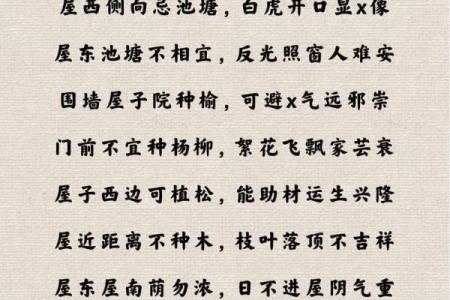 屋西侧向忌池塘，白虎开口显x像
屋东池塘不相宜，反光照窗人难安
围墙屋子院种榆，可避x气远邪崇
门前不宜种杨柳，絮花飞飘家芸衰
屋子西边可植松，能助材运生兴隆
屋近距离不种木，枝叶落顶不吉祥
屋东屋南荫勿浓，日不进屋阴气重